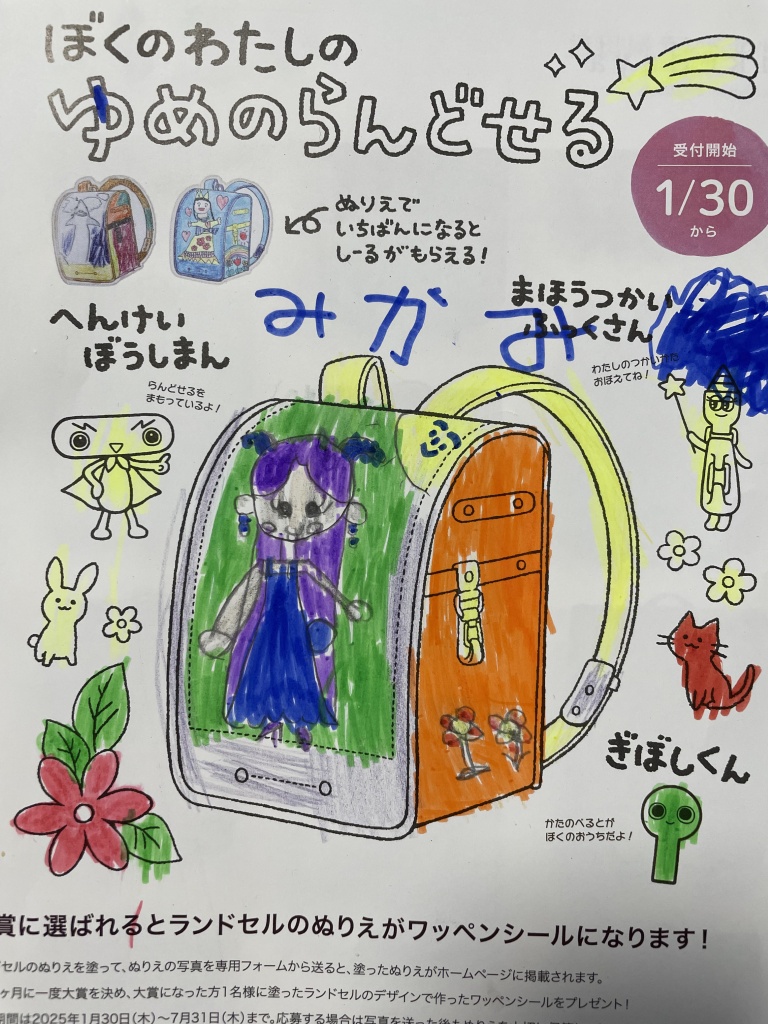 ぼくのわたしの
ゆめのらんどせる
受付開始
1/30
から
ぬりえで
いちばんになると
しーるがもらえる!
みかみ
まほうつかい
ふっくさん
わたしのつかいかた
おぼえてね!
へんけい
ぼうしまん
らんどせるを
まもっているよ!
ぎぼしくん
かたのべるとが
ぼくのおうちだよ!
賞に選ばれるとランドセルのぬりえがワッペンシールになります!
セルのぬりえを塗って、ぬりえの写真を専用フォームから送ると、塗ったぬりえがホームページに掲載されます。
ヶ月に一度大賞を決め、大賞になった方1名様に塗ったランドセルのデザインで作ったワッペンシールをプレゼント!
期間は2025年1月30日(木)〜7月31日(木)まで。応募する場合は写真を送った後も